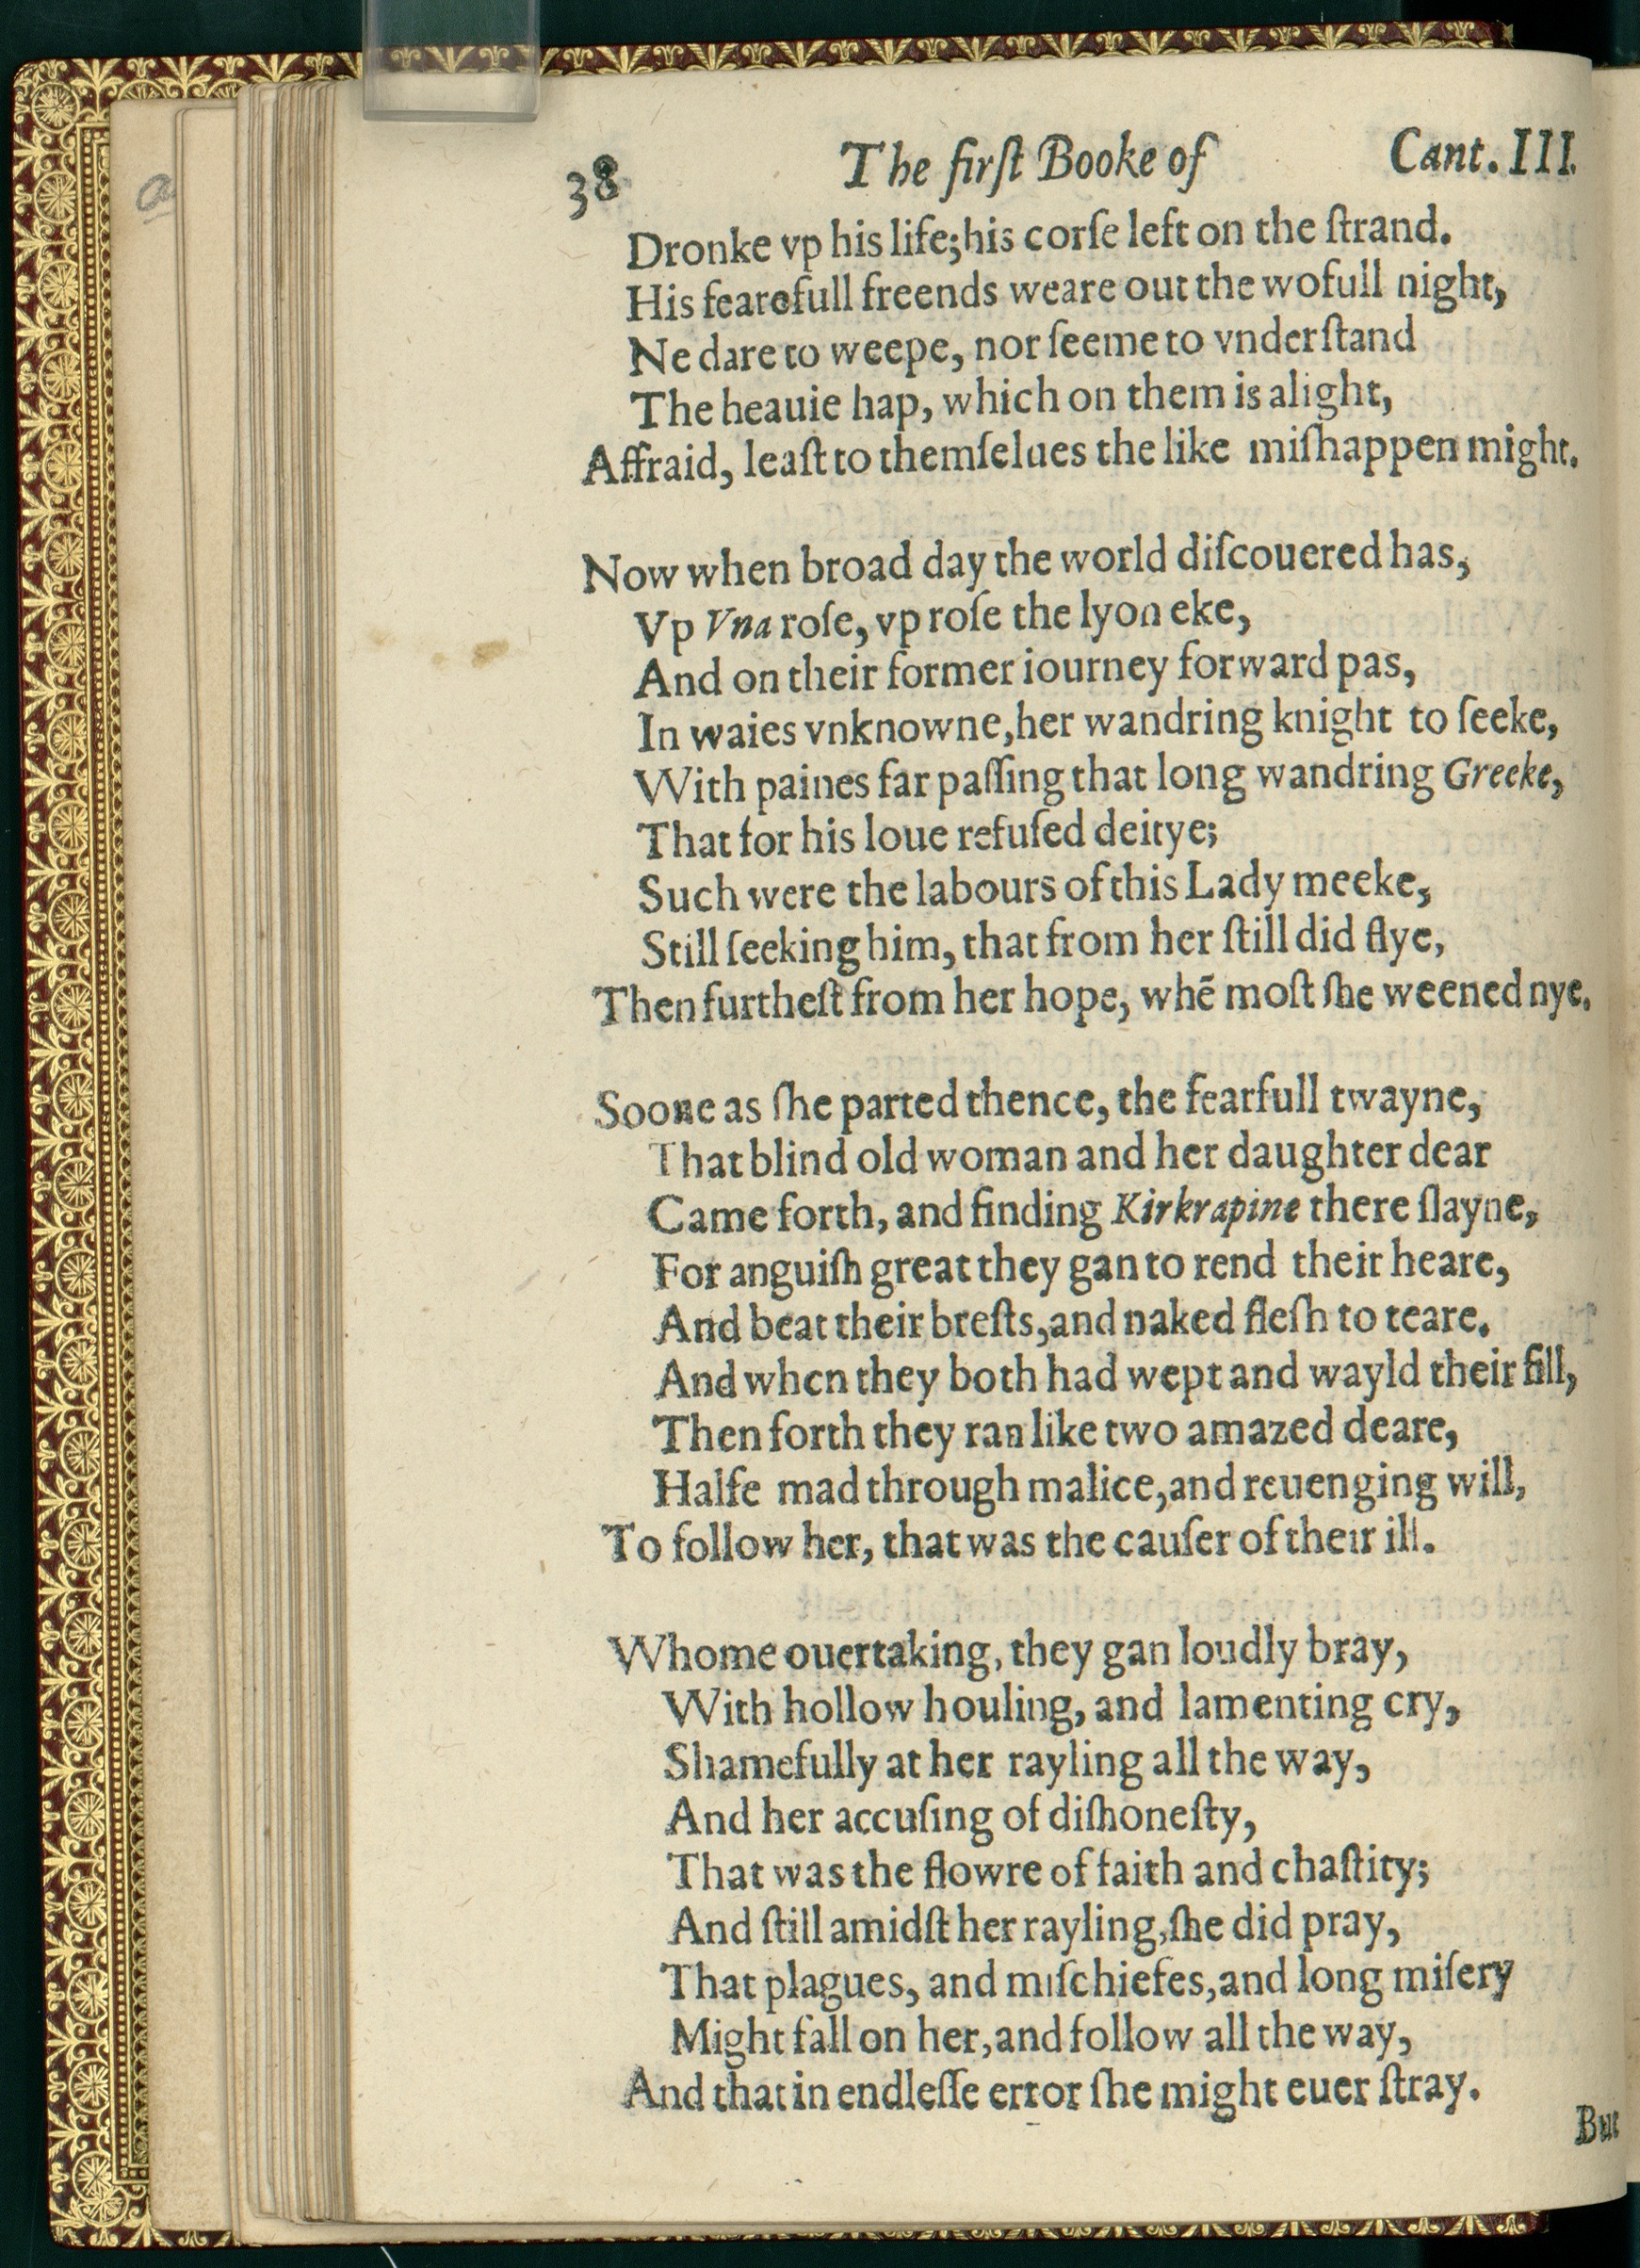 38 The firſt Booke of Cant. III.
Dronke vp his life; his corſe left on the ſtrand.
His fearefull freends weare out the wofull night,
Ne dare to weepe, nor ſeeme to vnderſtand
The heauie hap, which on them is alight,
Affraid, leaſt to themſelues the like miſhappen might.
Now when broad day the world diſcouered has,
Vp Vna roſe, vp roſe the lyon eke,
And on their former iourney forward pas,
In waies vnknowne, her wandring knight to ſeeke,
With paines far paſſing that long wandring Greeke,
That for his loue refuſed deitye;
Such were the labours of this Lady meeke,
Still ſeeking him, that from her ſtill did flye,
Then furtheſt from her hope, whē moſt ſhe weened nye.
Soone as ſhe parted thence, the fearfull twayne,
That blind old woman and her daughter dear
Came forth, and finding Kirkrapine there ſlayne,
For anguiſh great they gan to rend their heare,
And beat their breſts, and naked fleſh to teare.
And when they both had wept and wayld their fill,
Then forth they ran like two amazed deare,
Halfe mad through malice, and reuenging will,
To follow her, that was the cauſer of their ill.
Whome ouertaking, they gan loudly bray,
With hollow houling, and lamenting cry,
Shamefully at her rayling all the way,
And her accuſing of diſhoneſty,
That was the flowre of faith and chaſtity;
And ſtill amidſt her rayling, ſhe did pray,
That plagues, and miſchiefes, and long miſery
Might fall on her, and follow all the way,
And that in endleſſe error ſhe might euer ſtray.
But